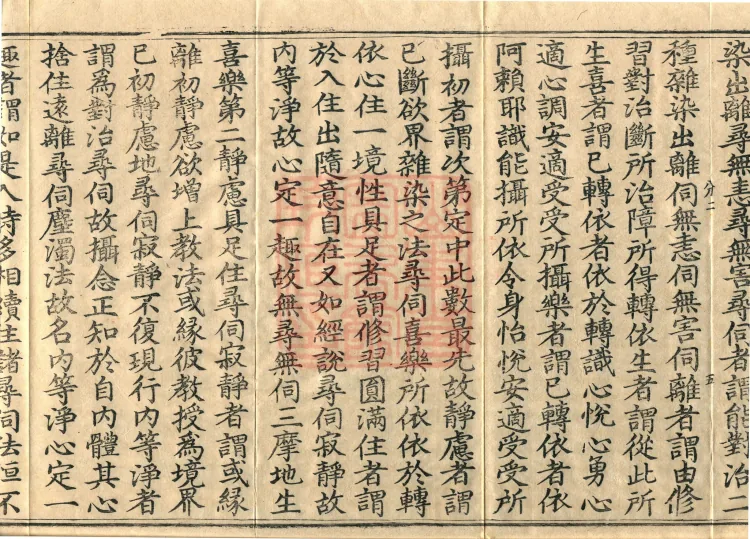 染出離尋無恚尋無害尋伺者謂能對治二
種雜染出離伺無恚伺無害伺離者謂由修
習對治斷所治障所得轉依生者謂從此所
生喜者謂已轉依者依於轉識心悅心勇心
適心調安適受受所攝樂者謂已轉依者依
阿賴耶識能攝所依令身怡悅安適受受所
攝初者謂次第定中此數最先故靜慮者謂
已斷欲界雜染之法尋伺喜樂所依依於轉
依心住一境性具足者謂修習圓滿住者謂
於入住出隨意自在又如經說尋伺寂靜故
內等淨故心定一趣故無尋無伺三摩地生
喜樂第二靜慮具足住尋伺寂靜者謂或緣
離初靜慮欲增上教法或緣彼教授為境界
已初靜慮地尋伺寂靜不復現行內等淨者
謂為對治尋伺故攝念正知於自內體其心
捨住遠離尋伺塵濁法故名內等淨心定一
趣者謂如是入時多相續住諸尋伺法恒不
分二
五